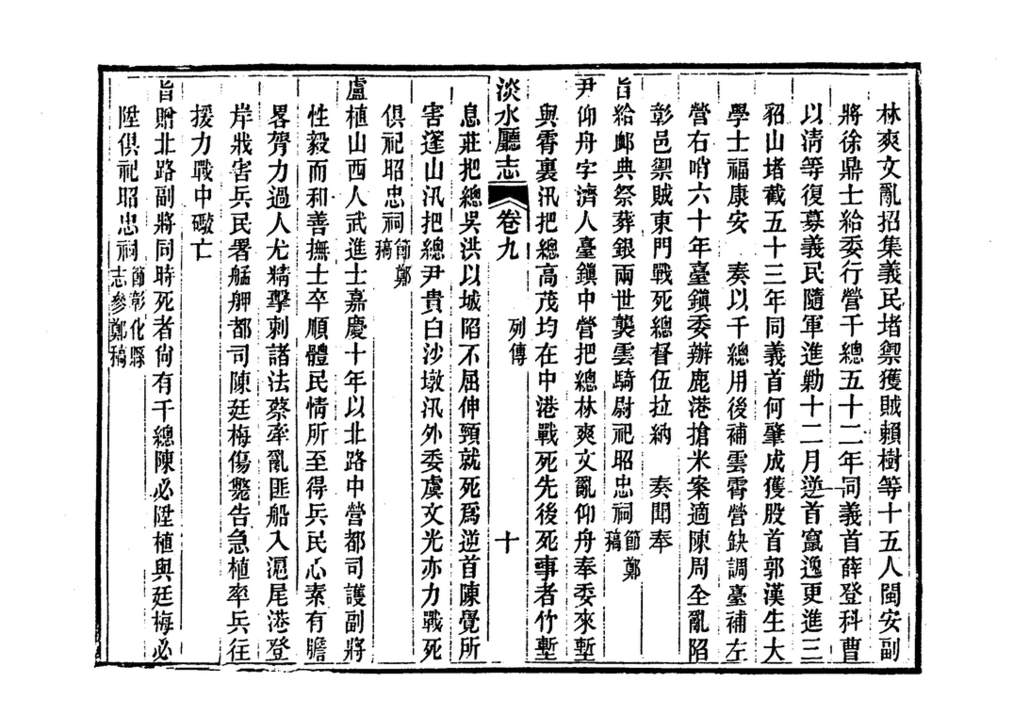 林爽文亂招集義民堵禦獲賊賴樹等十五人閩安副
將徐鼎士給委行營千總五十二年同義首薛登科曹
以淸等復募義民隨軍進勦十二月逆首竄逸更進三
貂山堵截五十三年同義首何肇成獲股首郭漢生大
學士福康安 奏以千總用後補雲霄營缺調臺補左
營右哨六十年臺鎭委辦鹿港搶米案適陳周全亂陷
彰邑禦賊東門戰死總督伍拉納 奏聞奉
旨給䘏典祭葬銀兩世襲雲騎尉祀昭忠祠節鄭稿
尹仰舟字濟人臺鎭中營把總林爽文亂仰舟奉委來塹
與霄裏汛把總高茂均在中港戰死先後死事者竹塹
淡水廳志 卷九 列傳 十
息莊把總吳洪以城陷不屈伸頸就死爲逆首陳覺所
害蓬山汛把總尹貴白沙墩汛外委虞文光亦力戰死
俱祀昭忠祠節鄭稿
盧植山西人武進士嘉慶十年以北路中營都司護副將
性毅而和善撫士卒順體民情所至得兵民心素有膽
畧膂力過人尤精擊刺諸法蔡牽亂匪船入滬尾港登
岸戕害兵民署艋舺都司陳廷梅傷斃告急植率兵往
援力戰中礮亡
旨贈北路副將同時死者尙有千總陳必陞植與廷梅必
陞俱祀昭忠祠節彰化縣志參鄭稿